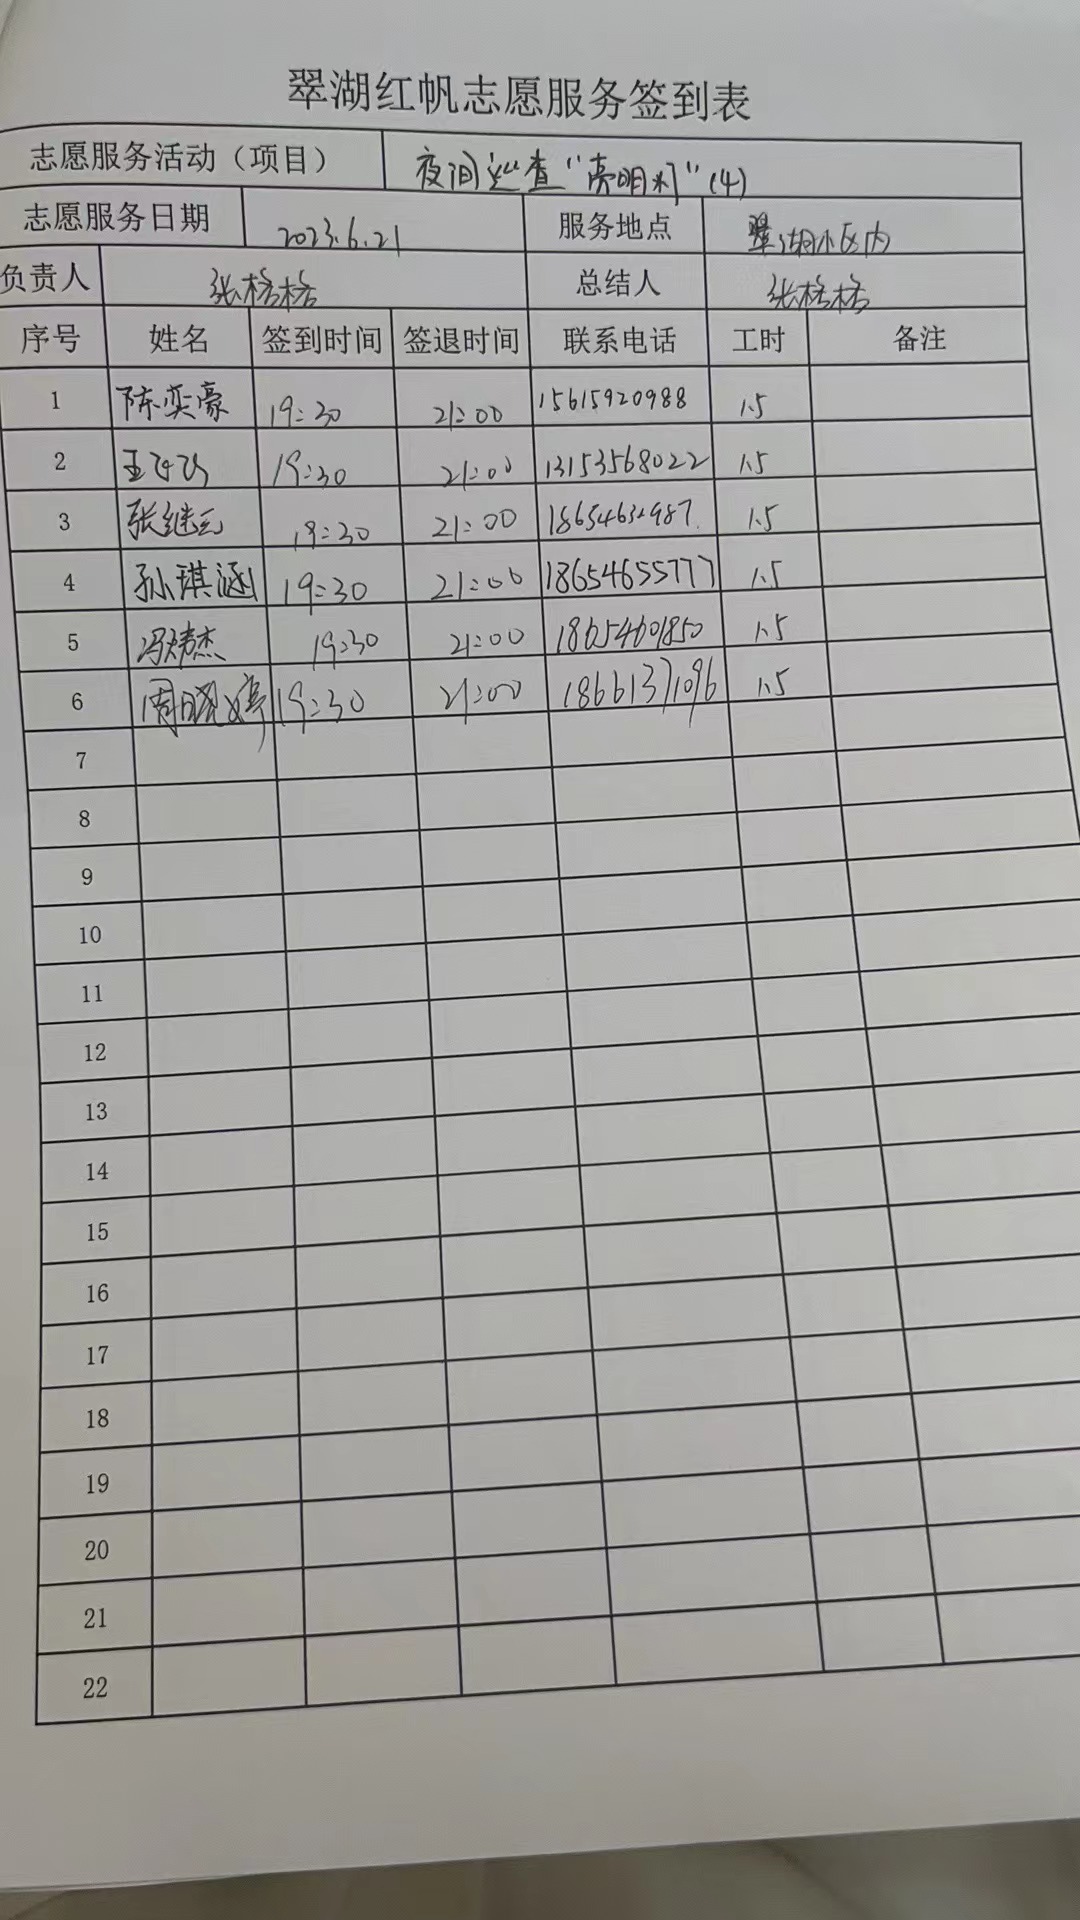 翠湖红帆志愿服务签到表
志愿服务活动（项目） 夜间巡查“亮明灯”(4)
志愿服务日期 2023.6.21 服务地点 翠湖小区内
负责人 张格格 总结人 张格格
序号 姓名 签到时间 签退时间 联系电话 工时 备注
1 陈奕豪 19:30 21:00 15615920988 1.5
2 19:30 21:00 13153568022 1.5
3 张继元 19:30 21:00 1.5
4 孙琪涵 19:30 21:00 18654655777 1.5
5 冯炜杰 19:30 21:00 18654601850 1.5
6 周晓婷 19:30 21:00 18661371096 1.5
7
8
9
10
11
12
13
14
15
16
17
18
19
20
21
22